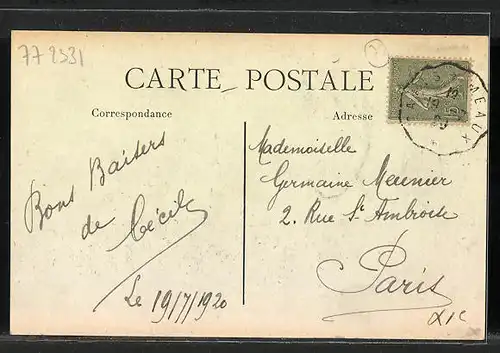 77 2531
CARTE POSTALE
Correspondance
Adresse
MEAUX
19
Bons Baisers
de Cécile
Le 19/7/1920
Mademoiselle
Germaine Meunier
2. Rue St Ambroise
Paris
XIe